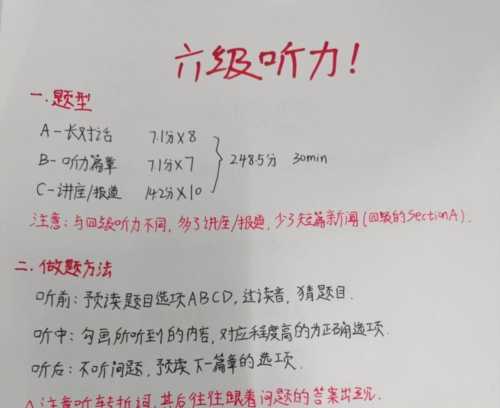 六级听力!
一.题型
A-长对话 7.1分×8
B-听力篇章 7.1分×7 } 248.5分 30min
C-讲座/报道 14.2分×10
注意:与四级听力不同,多了讲座/报道,少了短篇新闻(四级的SectionA).
二.做题方法
听前:预读题目选项ABCD,边读着,猜题目.
听中:勾画所听到的内容,对应程度高的为正确选项.
听后:不听问题,预读下一篇章的选项.
△注意听转折词,其后往往跟着问题的答案出现.